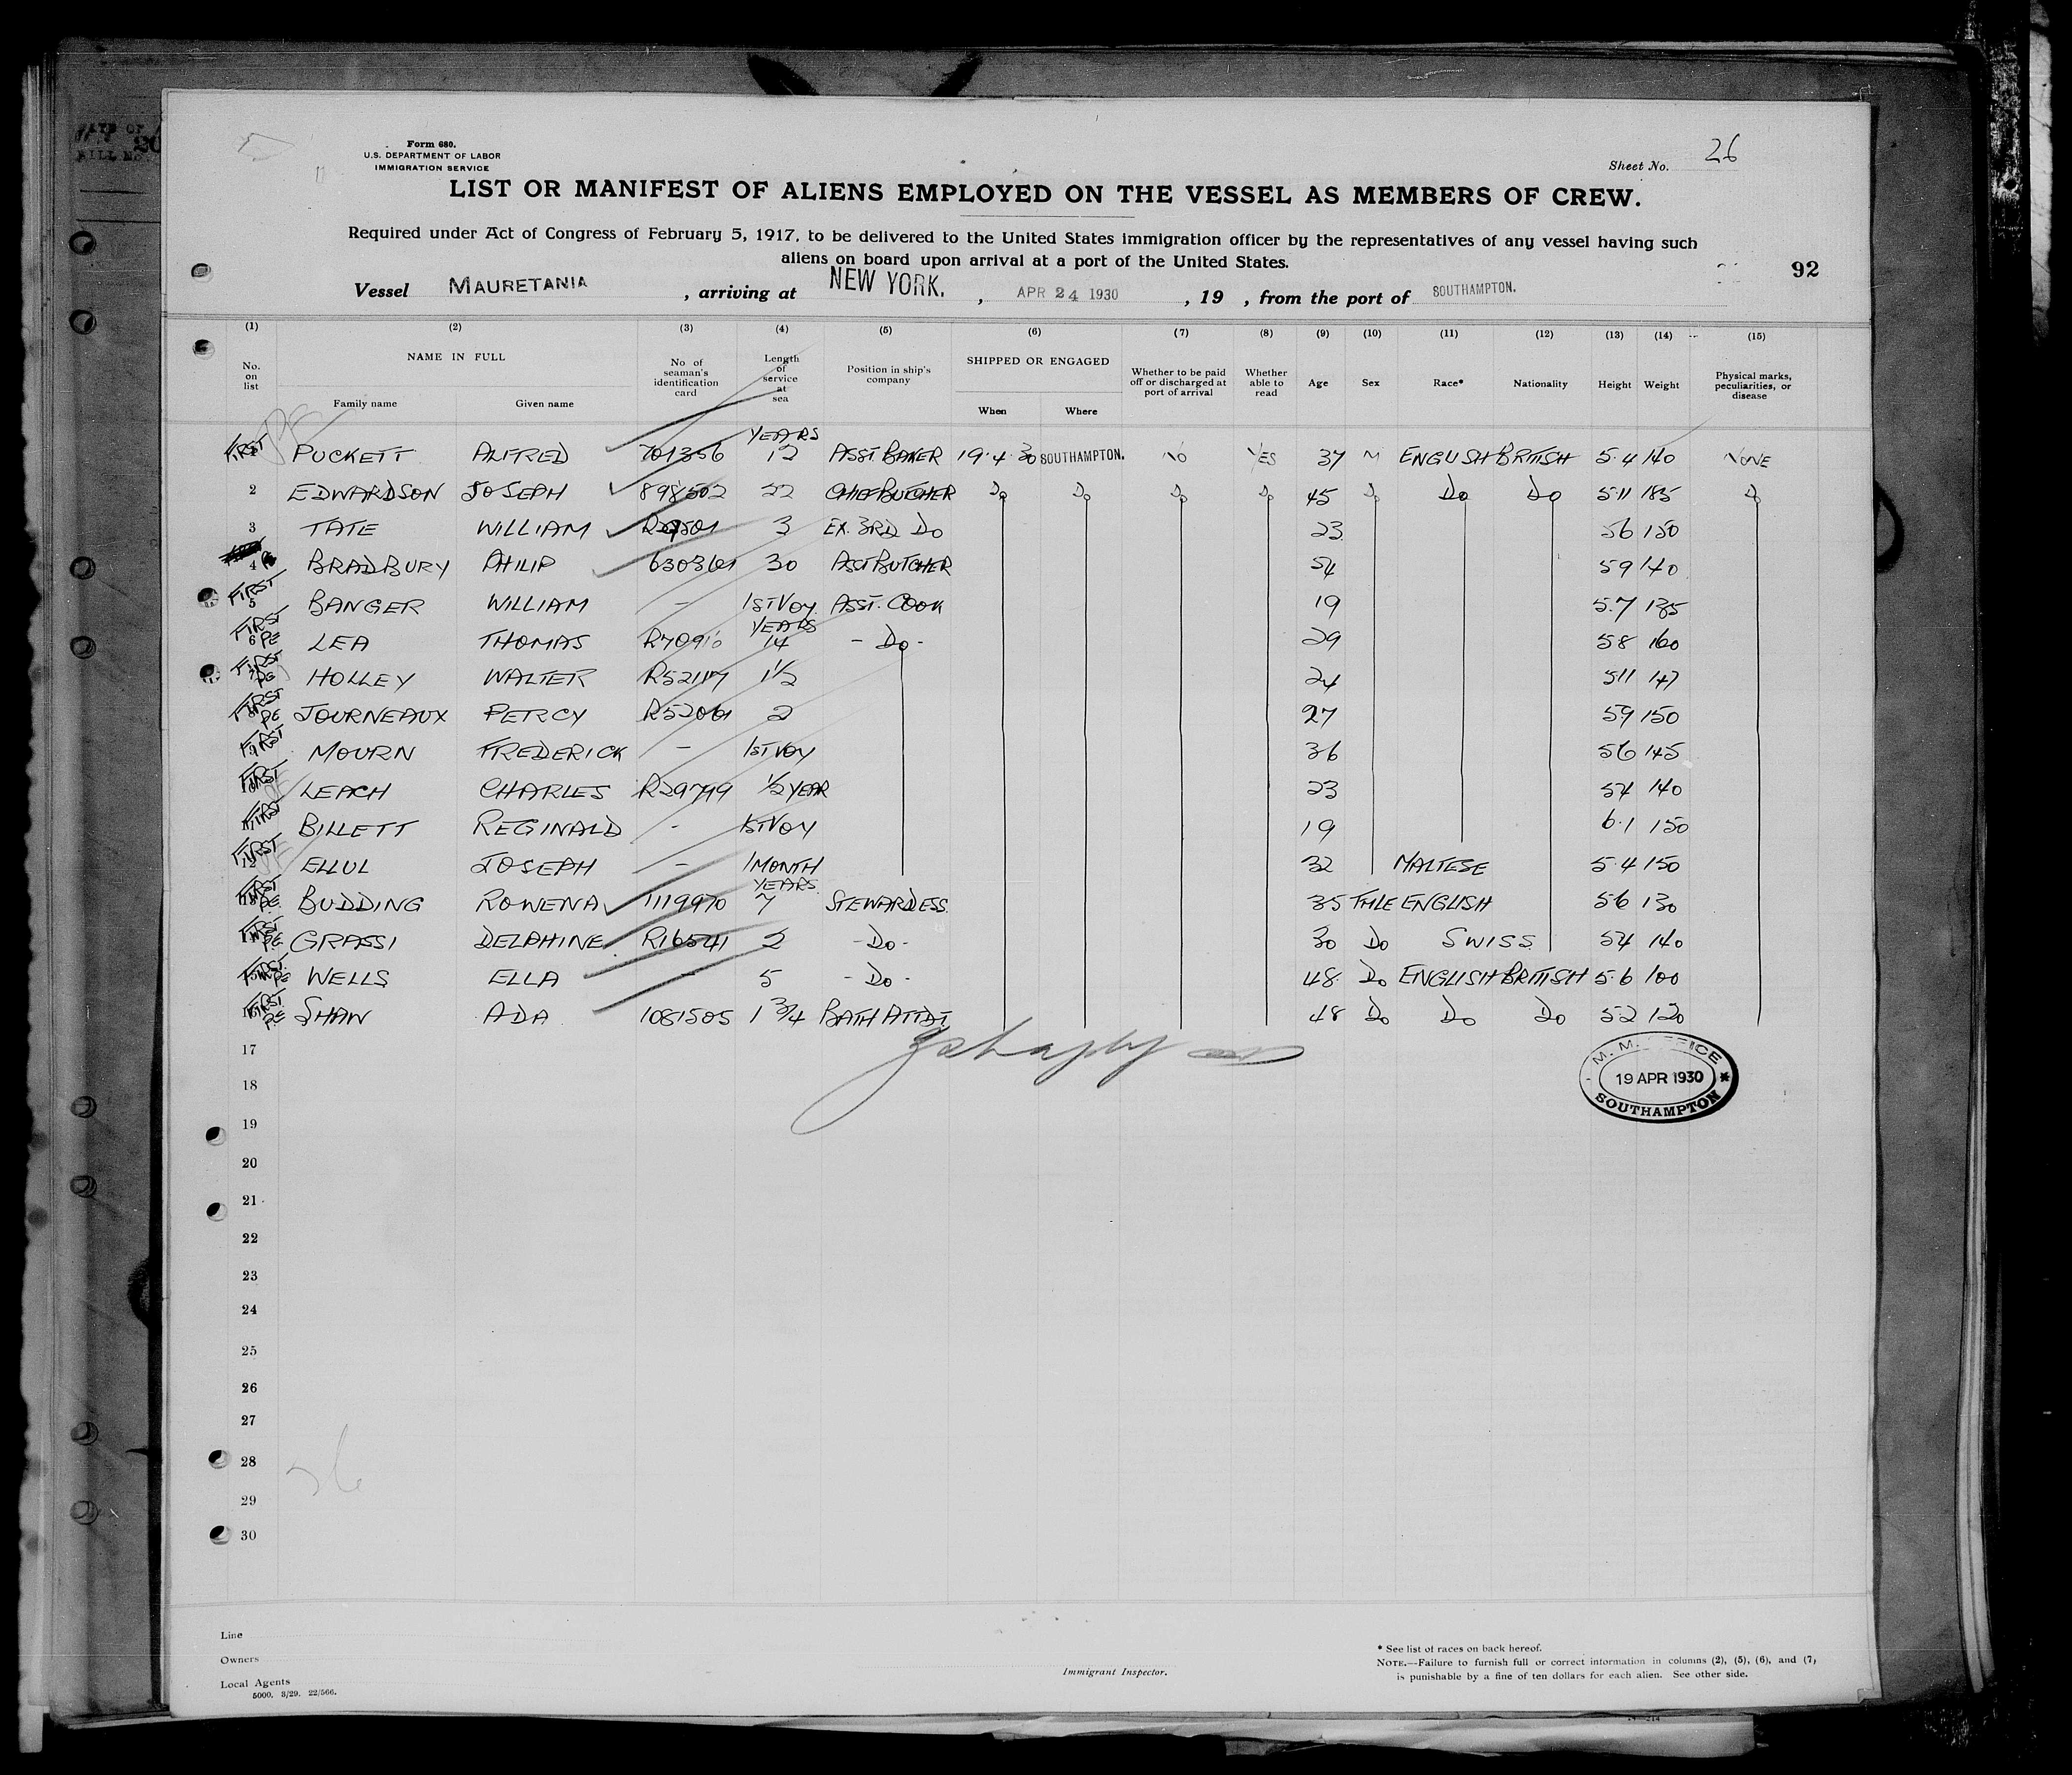 Form 680.
U.S. DEPARTMENT OF LABOR
IMMIGRATION SERVICE
Sheet No. 26
LIST OR MANIFEST OF ALIENS EMPLOYED ON THE VESSEL AS MEMBERS OF CREW.
Required under Act of Congress of February 5, 1917, to be delivered to the United States immigration officer by the representatives of any vessel having such
aliens on board upon arrival at a port of the United States.
92
Vessel MAURETANIA , arriving at NEW YORK. , APR 24 1930 , 19 , from the port of SOUTHAMPTON.
(1) (2) (3) (4) (5) (6) (7) (8) (9) (10) (11) (12) (13) (14) (15)
No. on list NAME IN FULL Family name Given name No of seaman's identification card Length of service at sea Position in ship's company SHIPPED OR ENGAGED When Where Whether to be paid off or discharged at port of arrival Whether able to read Age Sex Race* Nationality Height Weight Physical marks, peculiarities, or disease
YEARS
FIRST PUCKETT ALFRED 701356 12 ASST. BAKER 19.4.30 SOUTHAMPTON. NO YES 37 M ENGLISH BRITISH 5.4 140 NONE
2 EDWARDSON JOSEPH 898502 22 CHIEF BUTCHER Do Do Do Do 45 Do Do Do 5 11 185 Do
3 TATE WILLIAM 3 EX. 3RD Do 23 56 150
4 BRADBURY PHILIP 630361 30 ASST BUTCHER 54 59 140
FIRST 5 BANGER WILLIAM - 1ST VOY. ASST. COOK 19 5.7 135
YEARS
FIRST 6 PE LEA THOMAS 14 - Do - 29 58 160
FIRST PE HOLLEY WALTER R52117 1½ 24 511 147
FIRST PE JOURNEAUX PERCY R52061 2 27 59 150
FIRST 9 MOURN FREDERICK - 1ST VOY 36 56 145
FIRST LEACH CHARLES R29799 ½ YEAR 23 54 140
FIRST BILLETT REGINALD - 1ST VOY 19 6.1 150
FIRST 12 ELLUL JOSEPH - 1 MONTH 32 MALTESE 5.4 150
YEARS.
FIRST PE BUDDING ROWENA 1119970 7 STEWARDESS 35 FMLE ENGLISH 56 130
FIRST PE GRASSI DELPHINE R16541 2 - Do - 30 Do SWISS 54 140
FIRST PE WELLS ELLA - 5 - Do - 48 Do ENGLISH BRITISH 5.6 100
FIRST PE SHAW ADA 1081505 1 ¾ BATH ATTDT. 48 Do Do Do 52 120
17
18
19
20
21
22
23
24
25
26
27
28
29
30
M. M. OFFICE
19 APR 1930
SOUTHAMPTON
26
Line
Owners
Local Agents
5000. 3/29. 22/566.
Immigrant Inspector.
* See list of races on back hereof.
NOTE.—Failure to furnish full or correct information in columns (2), (5), (6), and (7)
is punishable by a fine of ten dollars for each alien. See other side.